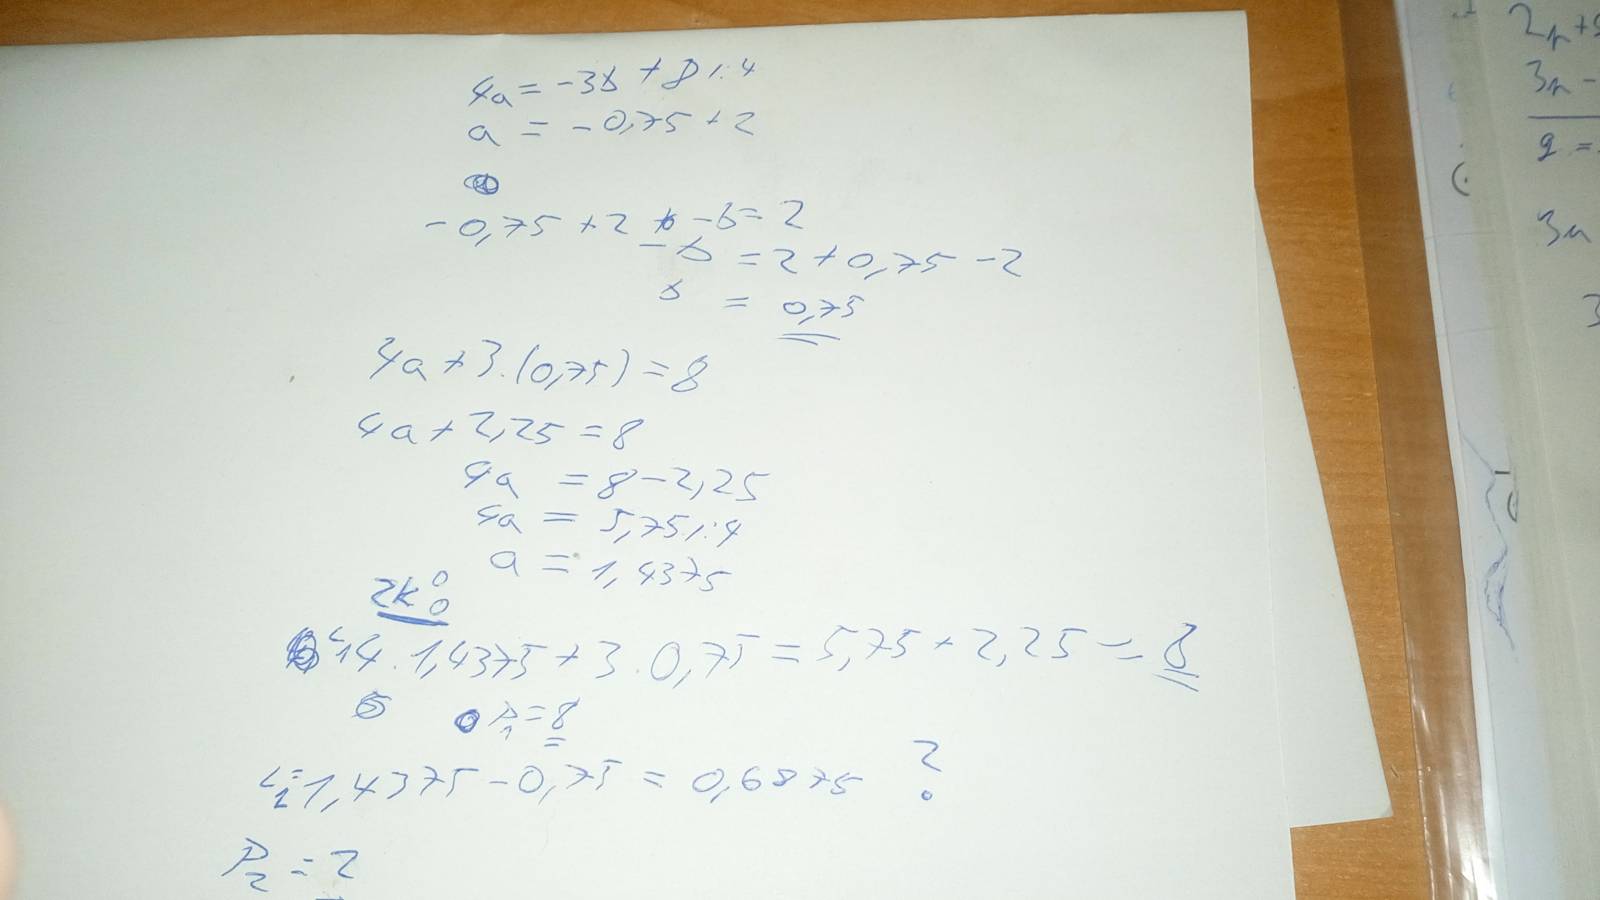 4a = -3b + 8 /:4
a = -0,75 + 2
-0,75 + 2 - b = 2
-b = 2 + 0,75 - 2
b = 0,75
4a + 3.(0,75) = 8
4a + 2,25 = 8
4a = 8 - 2,25
4a = 5,75 /:4
a = 1,4375
ZK:
L1 4 . 1,4375 + 3 . 0,75 = 5,75 + 2,25 = 8
P1 = 8
L2 = 1,4375 - 0,75 = 0,6875 ?
P2 = 2
3n -
2 =
3n
3